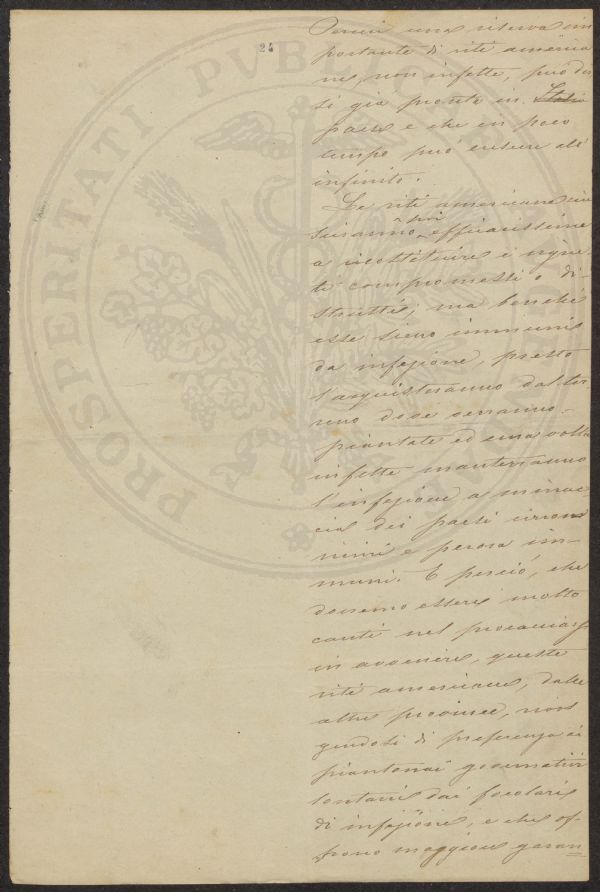 24
Perciò una riserva im
portante di viti america
ne, non infette, può dir
si già pronta in Italia
paese e che in poco
tempo può crescere all'
infinito.
Le viti americane riu
sciranno efficacissime
a ricostituire i vigne
ti compromessi o di-
strutti; ma benchè
esse sieno immuni
da infezione, presto
l'acquisteranno dal ter
reno dove verranno
piantate ed una volta
infette manterranno
l'infezione a minac
cia dei paesi circon
vicini e perora im-
muni. E perciò, che
dovremo essere molto
cauti nel procacciarsi
in avvenire, queste
viti americane, dalle
altre provincie, rivol
gendosi di preferenza ai
piantonai governativi
lontani dai focolari
di infezione, e che of-
frono maggiore garan
PROSPERITATI PVBLICAE AVGENDAE